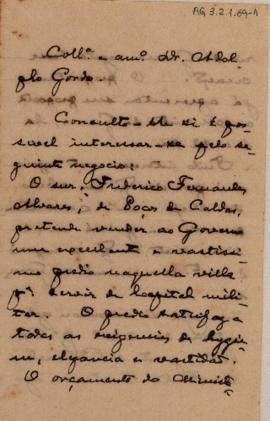 AG 3.2.1.69-A
Collª. e amº. Dr. Adol
pho Gordo.
Consulto-lhe si é pos
sivel interessar-se pelo se
guinte negocio:
O snr. Frederico Fernandes
Alvares, de Poços de Caldas,
pretende vender ao Governo
um excellente e vastissi
mo predio naquella villa
pª. servir de hospital mili
tar. O predio satisfaz a
todas as exigencias de hygie
ne, elegancia e vastidão.
O orçamento do Minist